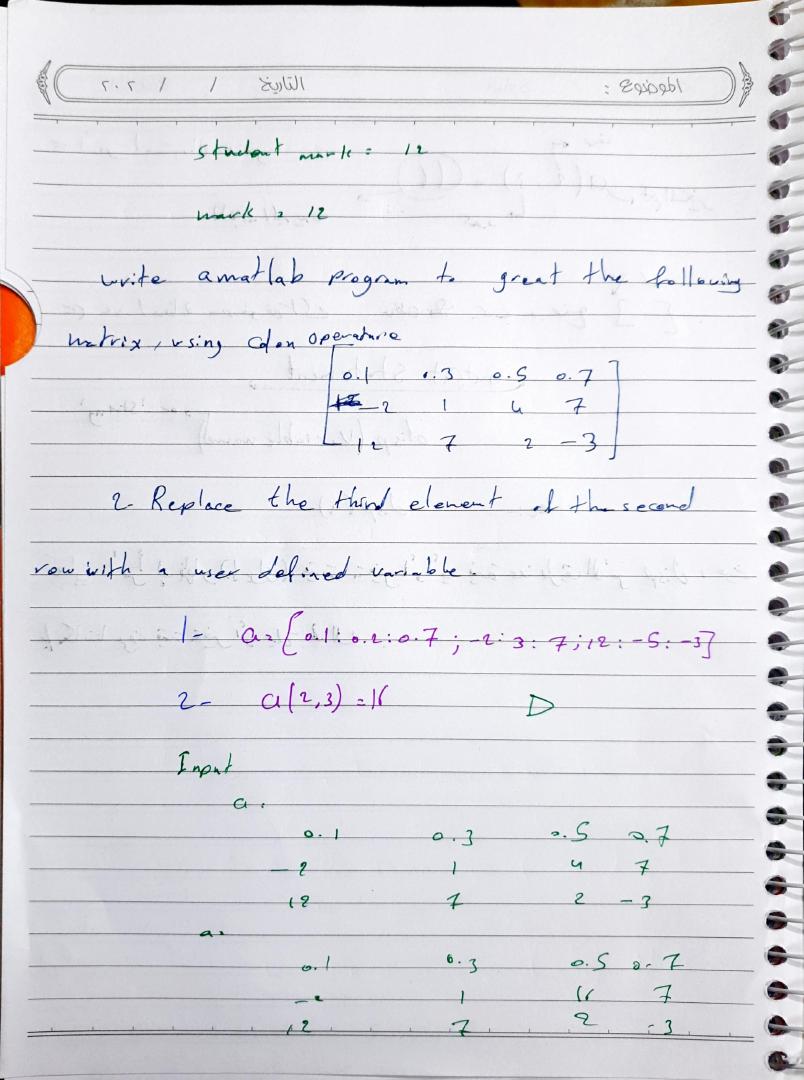 الموضوع : التاريخ / / ٢٠٢
student mark = 12
mark = 12
write a matlab program to great the following
matrix, using colon operature
0.1 0.3 0.5 0.7
-2 1 4 7
12 7 2 -3
2- Replace the third element of the second
row with a user defined variable
1- a=[0.1:0.2:0.7;-2:3:7;12:-5:-3]
2- a(2,3)=16
Input
a=
0.1 0.3 0.5 0.7
-2 1 4 7
12 7 2 -3
a=
0.1 0.3 0.5 0.7
-2 1 16 7
12 7 2 -3